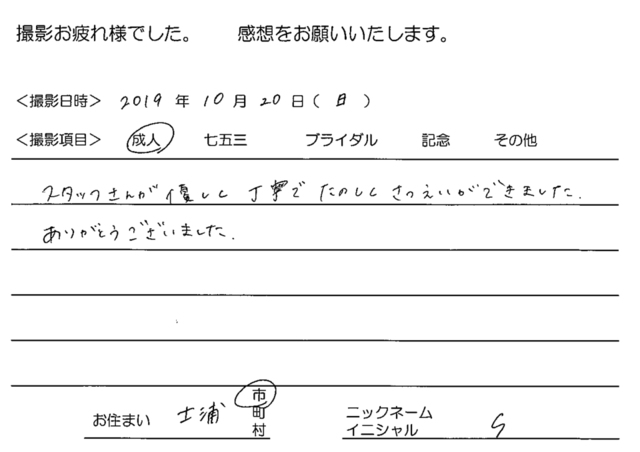 撮影お疲れ様でした。　　感想をお願いいたします。
＜撮影日時＞ 2019 年 10 月 20 日 ( 日 )
＜撮影項目＞ 成人 七五三 ブライダル 記念 その他
スタッフさんが優しく丁寧でたのしくさつえいができました.
ありがとうございました.
お住まい 土浦 市 町 村 ニックネーム イニシャル S